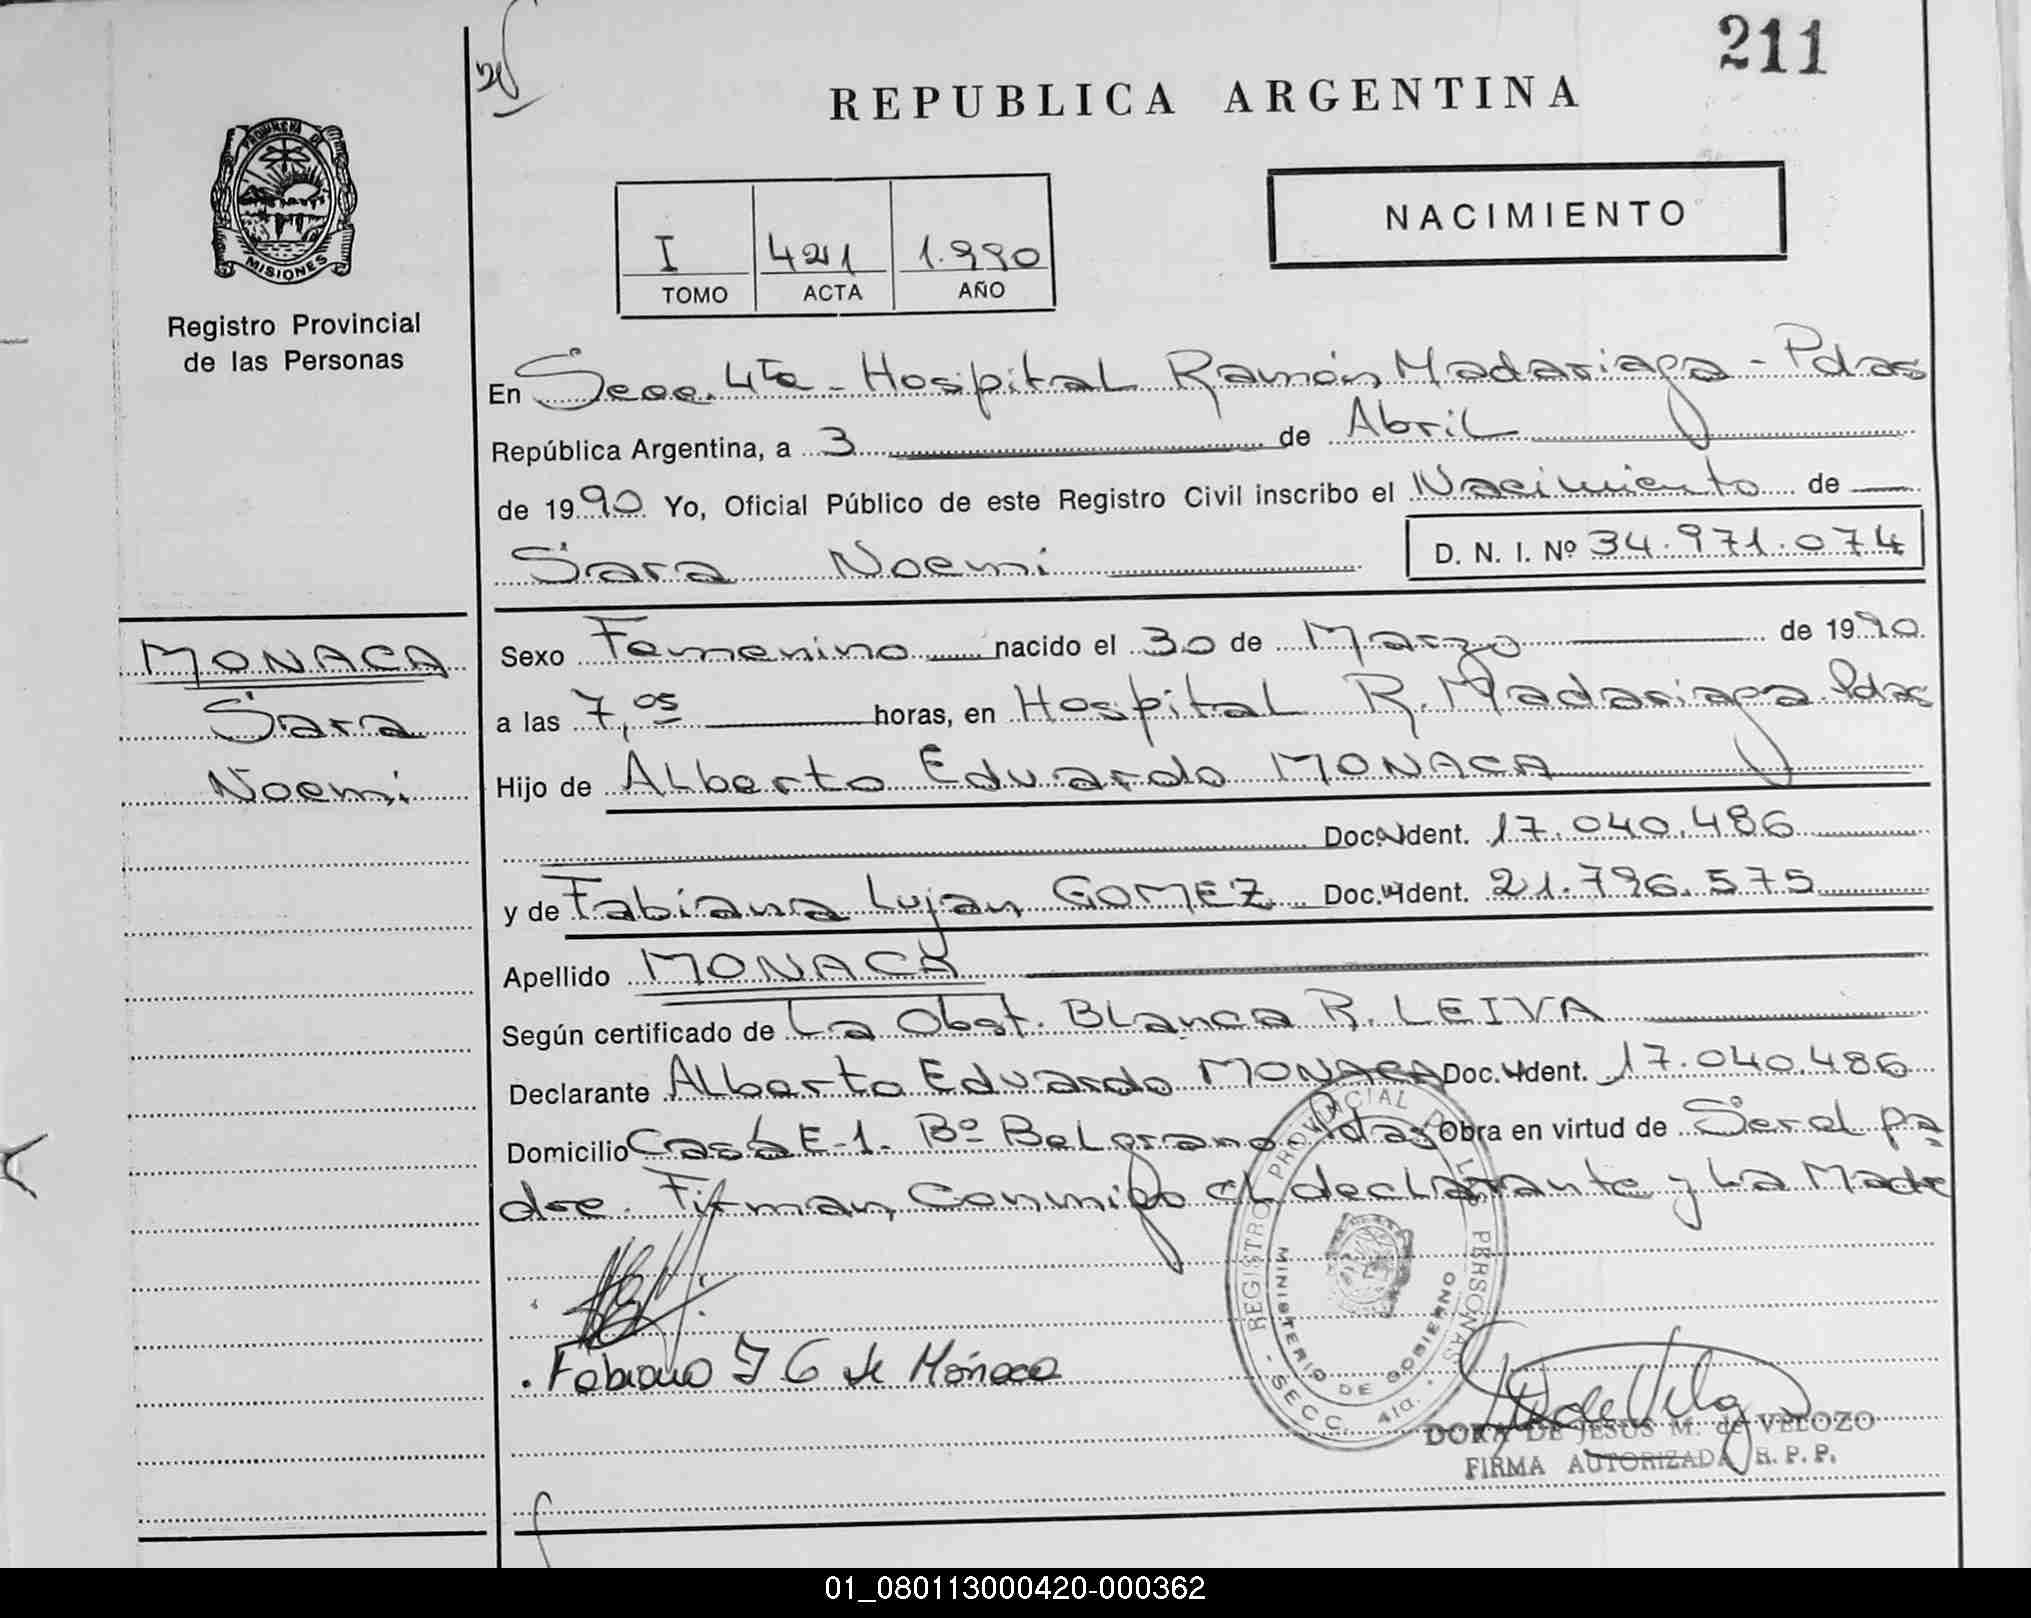 211
REPUBLICA ARGENTINA
PROVINCIA DE MISIONES
Registro Provincial
de las Personas
NACIMIENTO
I 421 1.990
TOMO ACTA AÑO
En Secc. 4ta - Hospital Ramón Madariaga - Pdas
República Argentina, a 3 de Abril
de 1990 Yo, Oficial Público de este Registro Civil inscribo el Nacimiento de
Sara Noemi D. N. I. Nº 34.971.074
MONACA
Sara
Noemi
Sexo Femenino nacido el 30 de Marzo de 1990
a las 7,05 horas, en Hospital R. Madariaga Pdas
Hijo de Alberto Eduardo MONACA
Doc. Ident. 17.040.486
y de Fabiana Lujan GOMEZ Doc. Ident. 21.796.575
Apellido MONACA
Según certificado de La Obst. Blanca R. LEIVA
Declarante Alberto Eduardo MONACA Doc. Ident. 17.040.486
Domicilio Casa E-1. Bº Belgrano Pdas Obra en virtud de Ser el pa
dre. Firman Conmigo el declarante y La Madre
REGISTRO PROVINCIAL DE LAS PERSONAS
MINISTERIO DE GOBIERNO
SECC. 4ta.
DORA DE JESUS M. de VELOZO
FIRMA AUTORIZADA R. P. P.
01_080113000420-000362